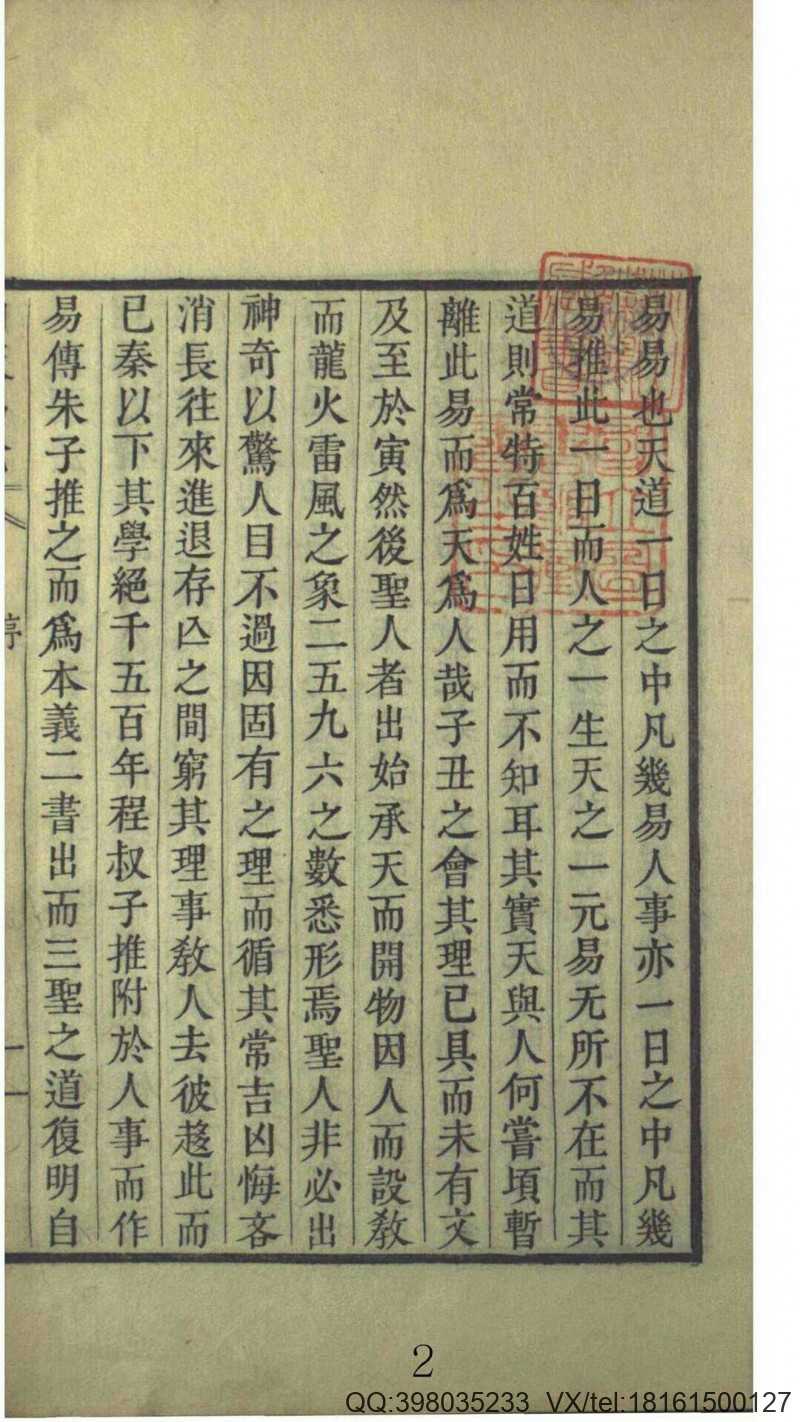 易易也天道一日之中凡幾易人事亦一日之中凡幾
易推此一日而人之一生天之一元易无所不在而其
道則常特百姓日用而不知耳其實天與人何嘗頃暫
離此易而爲天爲人哉子丑之會其理已具而未有文
及至於寅然後聖人者出始承天而開物因人而設敎
而龍火雷風之象二五九六之數悉形焉聖人非必出
神奇以驚人目不過因固有之理而循其常吉凶悔吝
消長往來進退存亾之間窮其理事敎人去彼趍此而
已秦以下其學絕千五百年程叔子推附於人事而作
易傳朱子推之而爲本義二書出而三聖之道復明自
2
QQ:398035233 VX/tel:18161500127